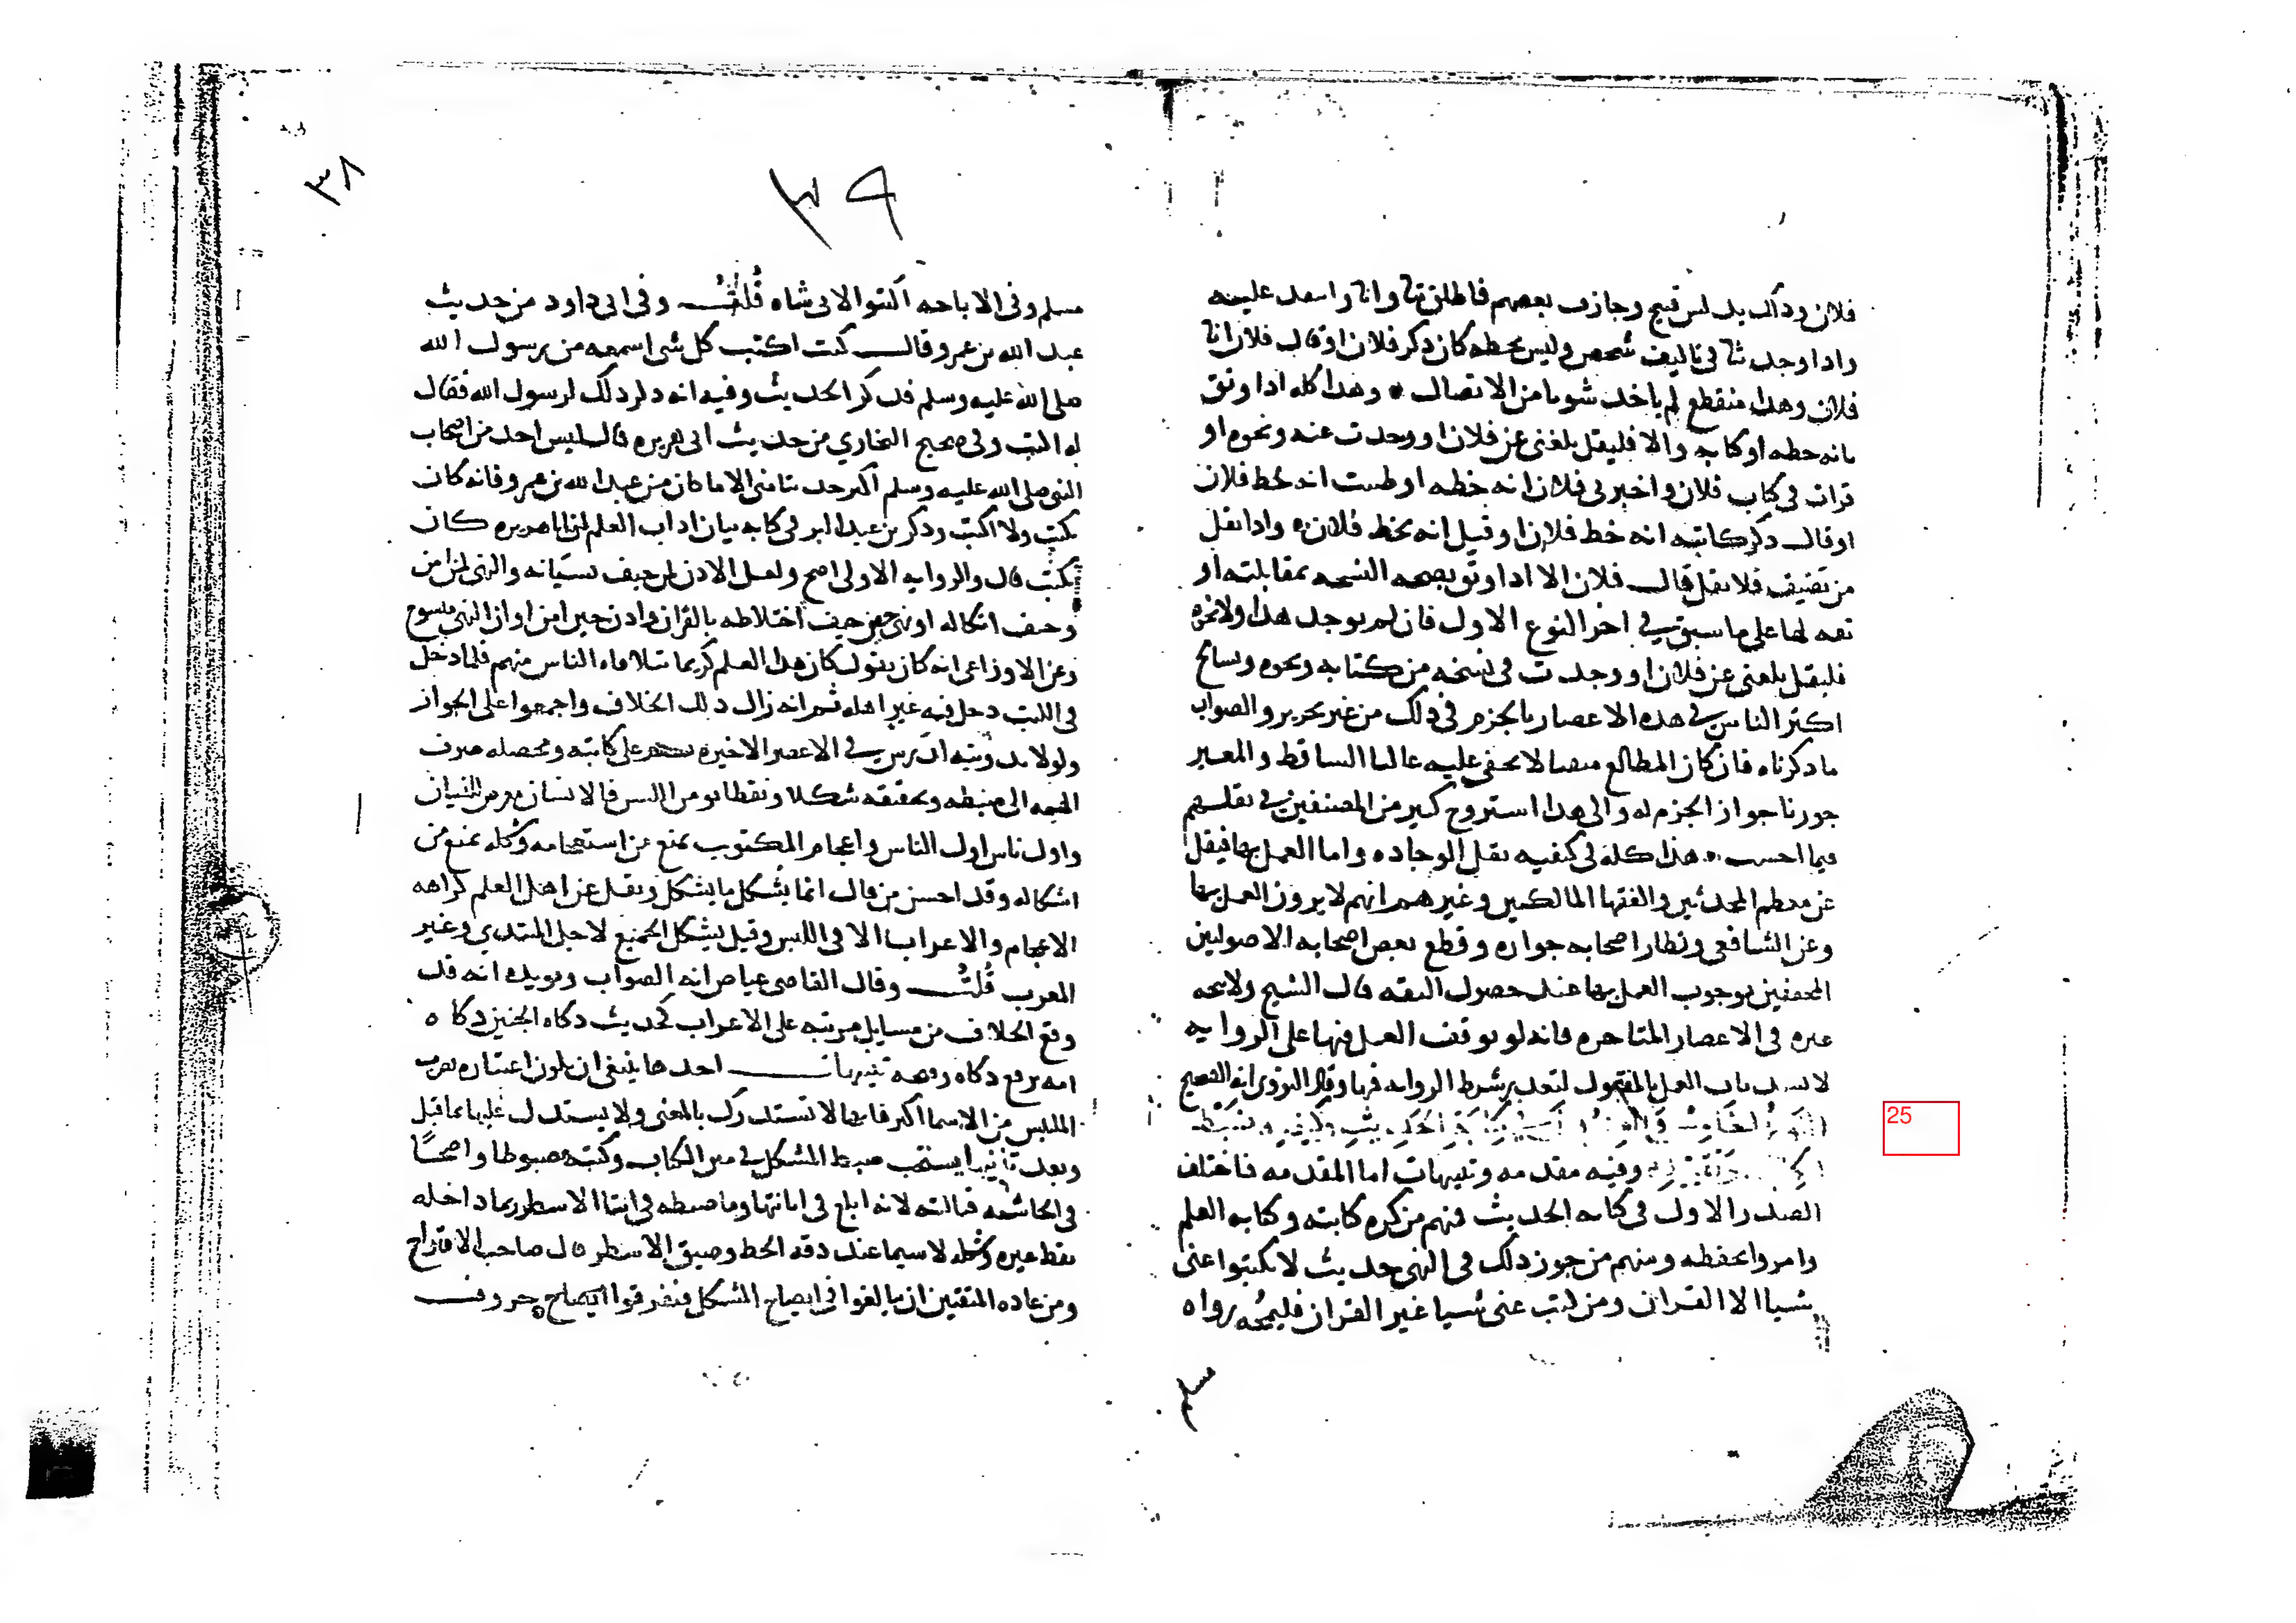 فلان وذلك تدليس قبيح وجازف بعضهم فاطلق ثنا وانا وانتقد عليه
واذا وجد شيئا في تاليف شخص وليس بخطه كان ذكر فلان او قال فلان انا
فلان وهذا منقطع لم ياخذ شوبا من الاتصال وهذا كله اذا وثق
بانه خطه او كتابه والا فليقل بلغني عن فلان او وجدت عنه ونحوه او
قرات في كتاب فلان واخبرني فلان انه خطه او ظننت انه بخط فلان
او قال ذكر كاتبه انه خط فلان او قيل انه بخط فلان واذا نقل
من تصنيف فلا يقل قال فلان الا اذا وثق بصحه النسخه بمقابلته او
ثقه لها على ما سبق في اخر النوع الاول فان لم يوجد هذا ولا نحوه
فليقل بلغني عن فلان او وجدت في نسخه من كتابه ونحوه وتسامح
اكثر الناس في هذه الاعصار بالجزم في ذلك من غير تحرير والصواب
ما ذكرناه فان كان المطالع متقنا لا يخفى عليه غالبا الساقط والمغير
جوزنا جواز الجزم له والى هذا استروح كثير من المصنفين في نقلهم
فيما احسب هذا كله في كيفيه نقل الوجاده واما العمل بها فنقل
عن معظم المحدثين والفقها المالكيين وغيرهم انهم لا يرون العمل بها
وعن الشافعي ونظار اصحابه جوازه وقطع بعض اصحابه الاصوليين
المحققين بوجوب العمل بها عند حصول الثقه قال الشيخ ولا يتجه
غيره في الاعصار المتاخره فانه لو توقف العمل فيها على الروايه
لانسد باب العمل بالمنقول لتعذر شرط الروايه فيها وقال النووي انه الصحيح
النوع الخامس والعشرون كتابة الحديث وكيفيه ضبط
الكتاب وتقييده وفيه مقدمه وتنبيهات اما المقدمه فاختلف
الصدر الاول في كتابه الحديث فمنهم من كره كتابته وكتابه العلم
وامروا بحفظه ومنهم من جوز ذلك في النهي حديث لا تكتبوا عني
شيا الا القران ومن كتب عني شيا غير القران فليمحه رواه
مسلم
٣٩
٣٨
مسلم وفي الاباحه اكتبوا لابي شاه قُلتُ وفي ابي داود من حديث
عبد الله بن عمرو قال كنت اكتب كل شي اسمعه من رسول الله
صلى الله عليه وسلم فذكر الحديث وفيه انه ذكر ذلك لرسول الله فقال
له اكتب وفي صحيح البخاري من حديث ابي هريره قال ليس احد من اصحاب
النبي صلى الله عليه وسلم اكثر حديثا مني الا ما كان من عبد الله بن عمرو فانه كان
يكتب ولا اكتب وذكر بن عبد البر في كتابه بيان اداب العلم ان ابا هريره كان
يكتب قال والروايه الاولى اصح ولعل الاذن لمن خيف نسيانه والنهي لمن امن
وخيف اتكاله او نهي حين خيف اختلاطه بالقران واذن حين امن او ان النهي منسوخ
وعن الاوزاعي انه كان يقول كان هذا العلم كريما يتلاقاه الناس منهم فلما دخل
في الكتب دخل فيه غير اهله ثم انه زال ذلك الخلاف واجمعوا على الجواز
ولولا تدوينه لدرس في الاعصر الاخيره على كاتبه ومحصله صرف
الهمه الى ضبطه وتحقيقه شكلا ونقطا يومن اللبس فالانسان معرض للنسيان
واول ناس اول الناس واعجام المكتوب يمنع من استعجامه وشكله يمنع من
اشكاله وقد احسن من قال انما يشكل ما يشكل ونقل عن اهل العلم كراهه
الاعجام والاعراب الا في اللبس وقيل يشكل الجميع لاجل المبتدي وغير
المعرب قُلتُ وقال القاضي عياض انه الصواب ويويده انه قد
وقع الخلاف من مسايل مرتبه على الاعراب كحديث ذكاه الجنين ذكاه
امه برفع ذكاه ونصبه تنبيهات احدها ينبغي ان يكون اعتناوه بضبط
الملتبس من الاسما اكثر فانها لا تستدرك بالمعنى ولا يستدل عليها بما قبل
وبعد ثانيها يستحب ضبط المشكل في متن الكتاب وكتبه مضبوطا واضحًا
في الحاشيه قبالته لانه ابلغ في ابانتها وما ضبطه في اثنا الاسطر ربما داخله
نقط غيره وشكله لا سيما عند دقه الخط وضيق الاسطر قال صاحب الاقتراح
ومن عاده المتقنين ان يبالغوا في ايضاح المشكل فيفرقوا ايضاح حروف
25